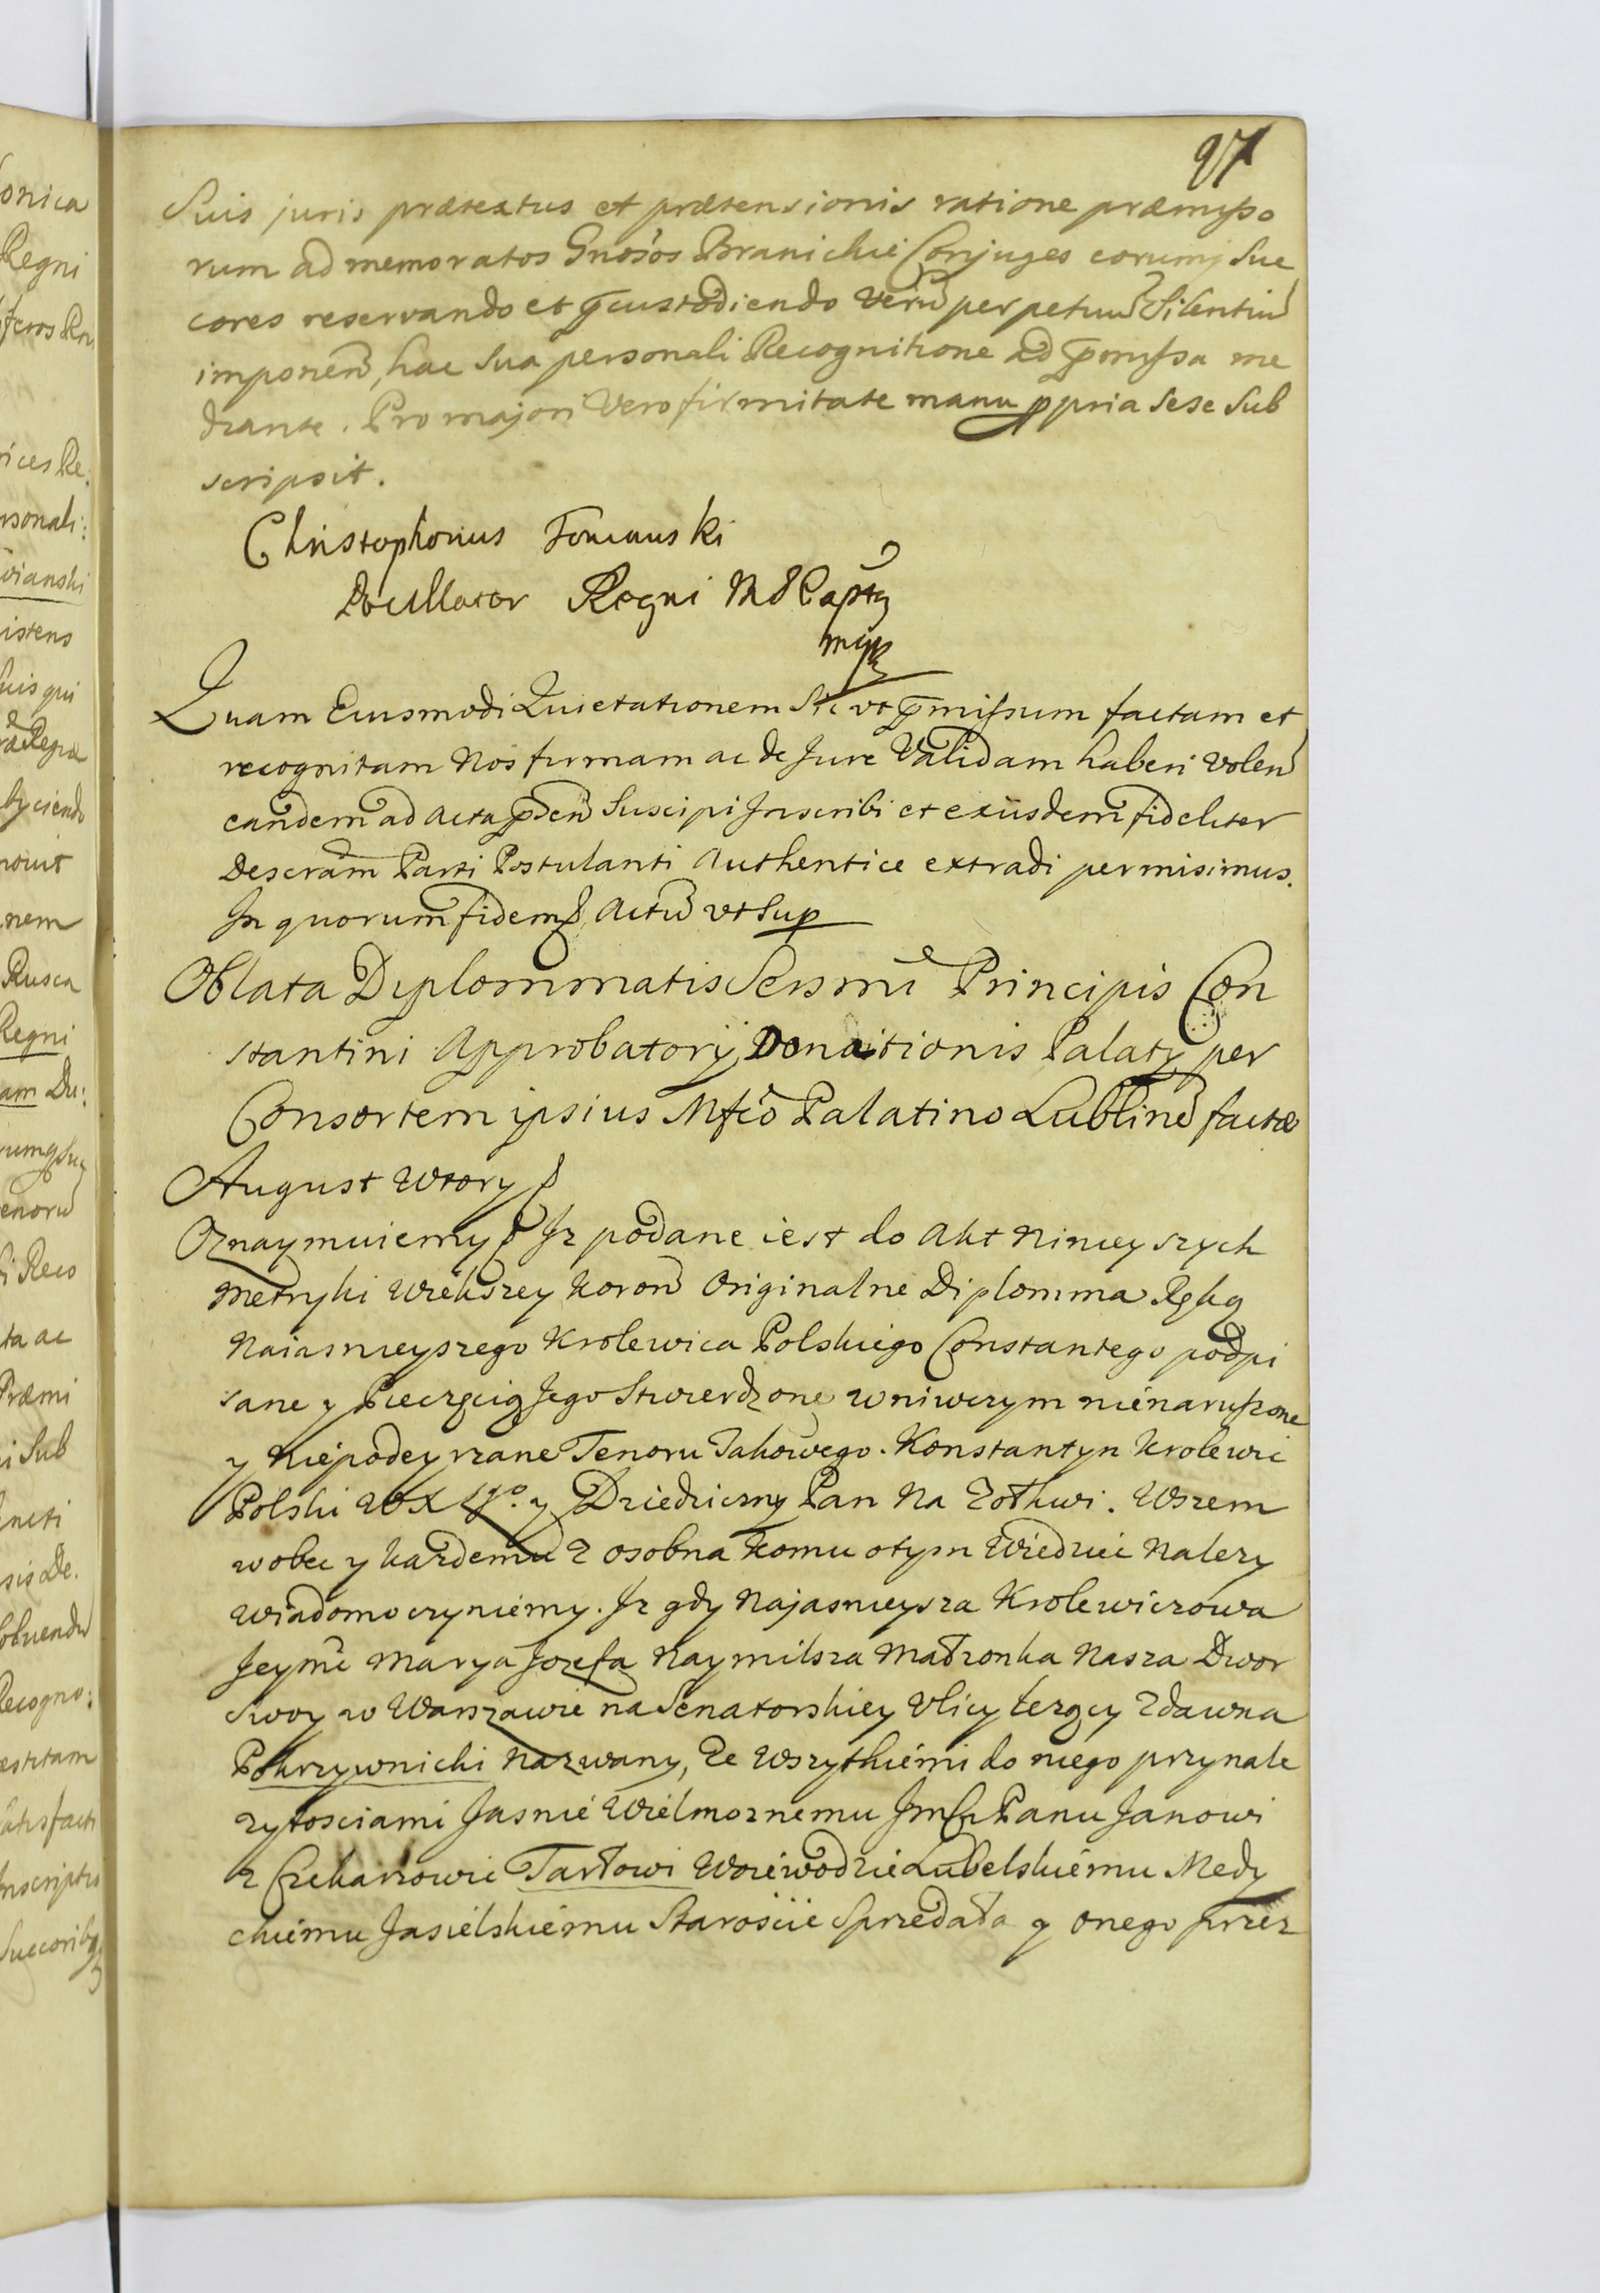 97
Suis juris prætextus et prætensionis ratione præmisso
rum ad memoratos Gnosos Branickie Conjuges eorumq Suc
cores reservando et pcustodiendo Veru perpetuu Silentiu
imponen, hac Sua personali Recognitione ad pmissa me
diante. Pro majori Vero firmitate manu ppria Sese Sub
scripsit.
Christophorus Towianski
Pocillator Regni
mpp
Quam Eiusmodi Quietationem Sic vt pmissum factam et
recognitam Nos firmam ac de Jure Validam haberi Volen
eandem ad Acta psen Suscipi Inscribi et ex iisdem fideliter
Descram Parti Postulanti Authentice extradi permisimus.
In quorum fidem Actu vt Sup
Oblata Diplommatis Sersmi Principis Con
stantini Approbatorij Donaitionis Palatij per
Consortem ipsius Mfco Palatino Lublinen factæ
August Wtory
Oznaymuiemy Jz podane iest do Akt Ninieyszych
Metryki Wiekszey Koron Originalne Diplomma Ręką
Naiasnieyszego Krolewica Polskiego Constantego podpi
sane y Pieczęcią Jego Stwierdzone w niwczym nienaruszone
y Niepodeyrzane Tenoru Takowego. Konstantyn Krolewic
Polski WXL y Dziedziczny Pan Na Zołkwi. Wszem
wobec y każdemu z osobna komu otym Wiedziec Nalezy
Wiadomo czyniemy. Jz gdy Najasnieysza Krolewiczowa
Jeymc Marya Jozefa Naymilsza Małzonka Nasza Dwor
Swoy w Warszawie na Senatorskiey Vlicy lezący Zdawna
Pokrzywnicki Nazwany, Ze Wszytkiemi do niego przynale
zytosciami Jasnie Wielmoznemu Jmć Panu Janowi
z Czekarzowic Tarłowi Woiewodzie Lubelskiemu Medy
ckiemu Jasielskiemu Starosćie Sprzedała y onego przez